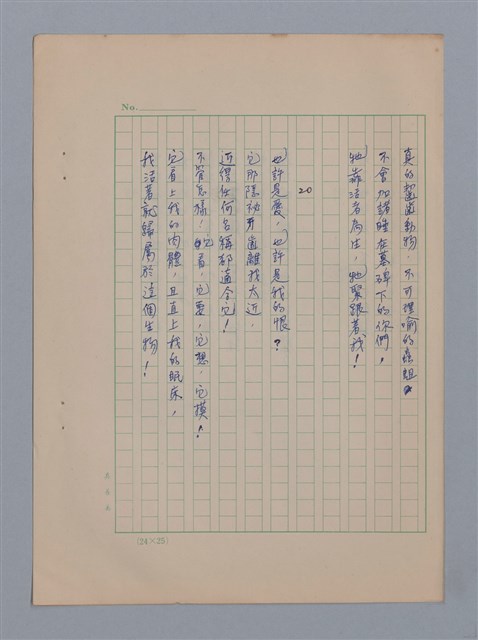 No.
真的齧齒動物，不可理喻的蟲蛆
不會加諸睡在墓碑下的你們，
牠靠活者為生，牠緊跟著我！
20
也許是愛，也許是我的恨？
它那隱祕牙齒離我太近，
近得任何名稱都適合它！
不管怎樣！它看，它要，它想，它摸！
它看上我的肉體，且直上我的眠床，
我活著就歸屬於這個生物！
(24×25)